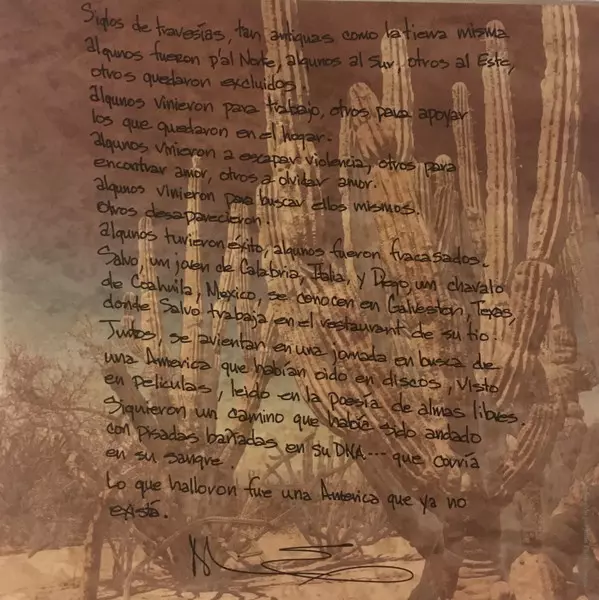 Siglos de travesías, tan antiguas como la tierra misma
algunos fueron p'al Norte, algunos al Sur, otros al Este,
otros quedaron excluidos.
algunos vinieron para trabajo, otros para apoyar
los que quedaron en el hogar.
algunos vinieron a escapar violencia, otros para
encontrar amor, otros a olvidar amor.
algunos vinieron para buscar ellos mismos.
Otros desaparecieron.
algunos tuvieron exito, algunos fueron fracasados.
Salvo, un joven de Calabria, Italia, y Diego, un chavalo
de Coahuila, Mexico, se conocen en Galveston, Texas,
donde Salvo trabaja en el restaurant de su tio.
Juntos, se avientan en una jornada en busca de
una America que habían oido en discos, visto
en peliculas, leido en la poesía de almas libres.
Siguieron un camino que había sido andado
con pisadas bañadas en su DNA --- que corría
en su sangre.
Lo que hallaron fue una America que ya no
existía.